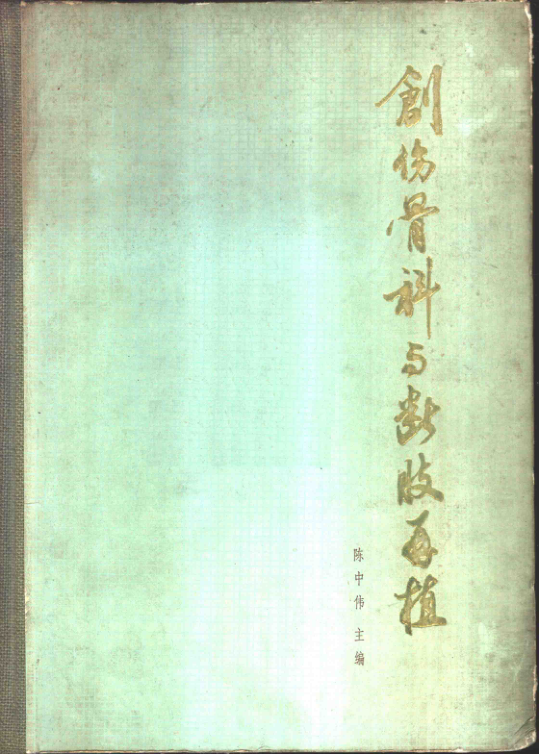 創伤骨科与断肢再植
陈中伟 主编